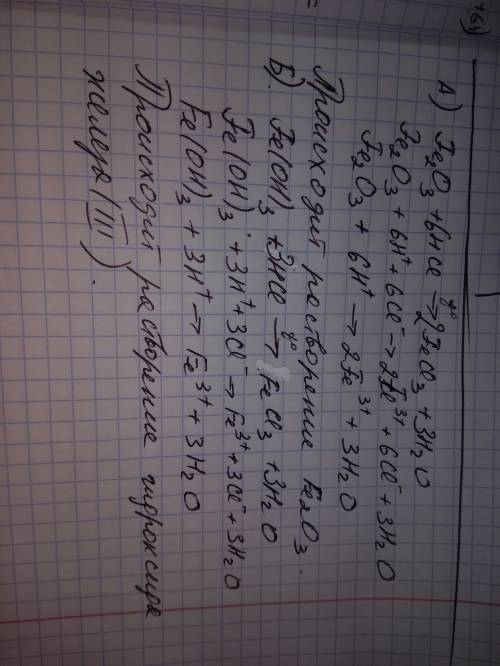 +6H
А) Fe₂O₃ + 6HCl →t° 2FeCl₃ + 3H₂O
Fe₂O₃ + 6H⁺ + 6Cl⁻ → 2Fe³⁺ + 6Cl⁻ + 3H₂O
Fe₂O₃ + 6H⁺ → 2Fe³⁺ + 3H₂O
Происходит растворение Fe₂O₃.
Б) Fe(OH)₃ + 3HCl →t° FeCl₃ + 3H₂O
Fe(OH)₃ + 3H⁺ + 3Cl⁻ → Fe³⁺ + 3Cl⁻ + 3H₂O
Fe(OH)₃ + 3H⁺ → Fe³⁺ + 3H₂O
Происходит растворение гидроксида
железа (III).